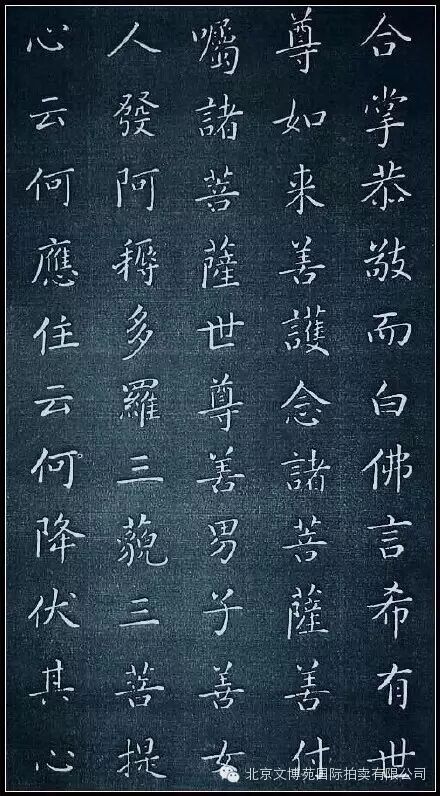 合掌恭敬而白佛言希有世
尊如来善護念諸菩薩善付
囑諸菩薩世尊善男子善女
人發阿耨多羅三藐三菩提
心云何應住云何降伏其心
北京文博苑国际拍卖有限公司